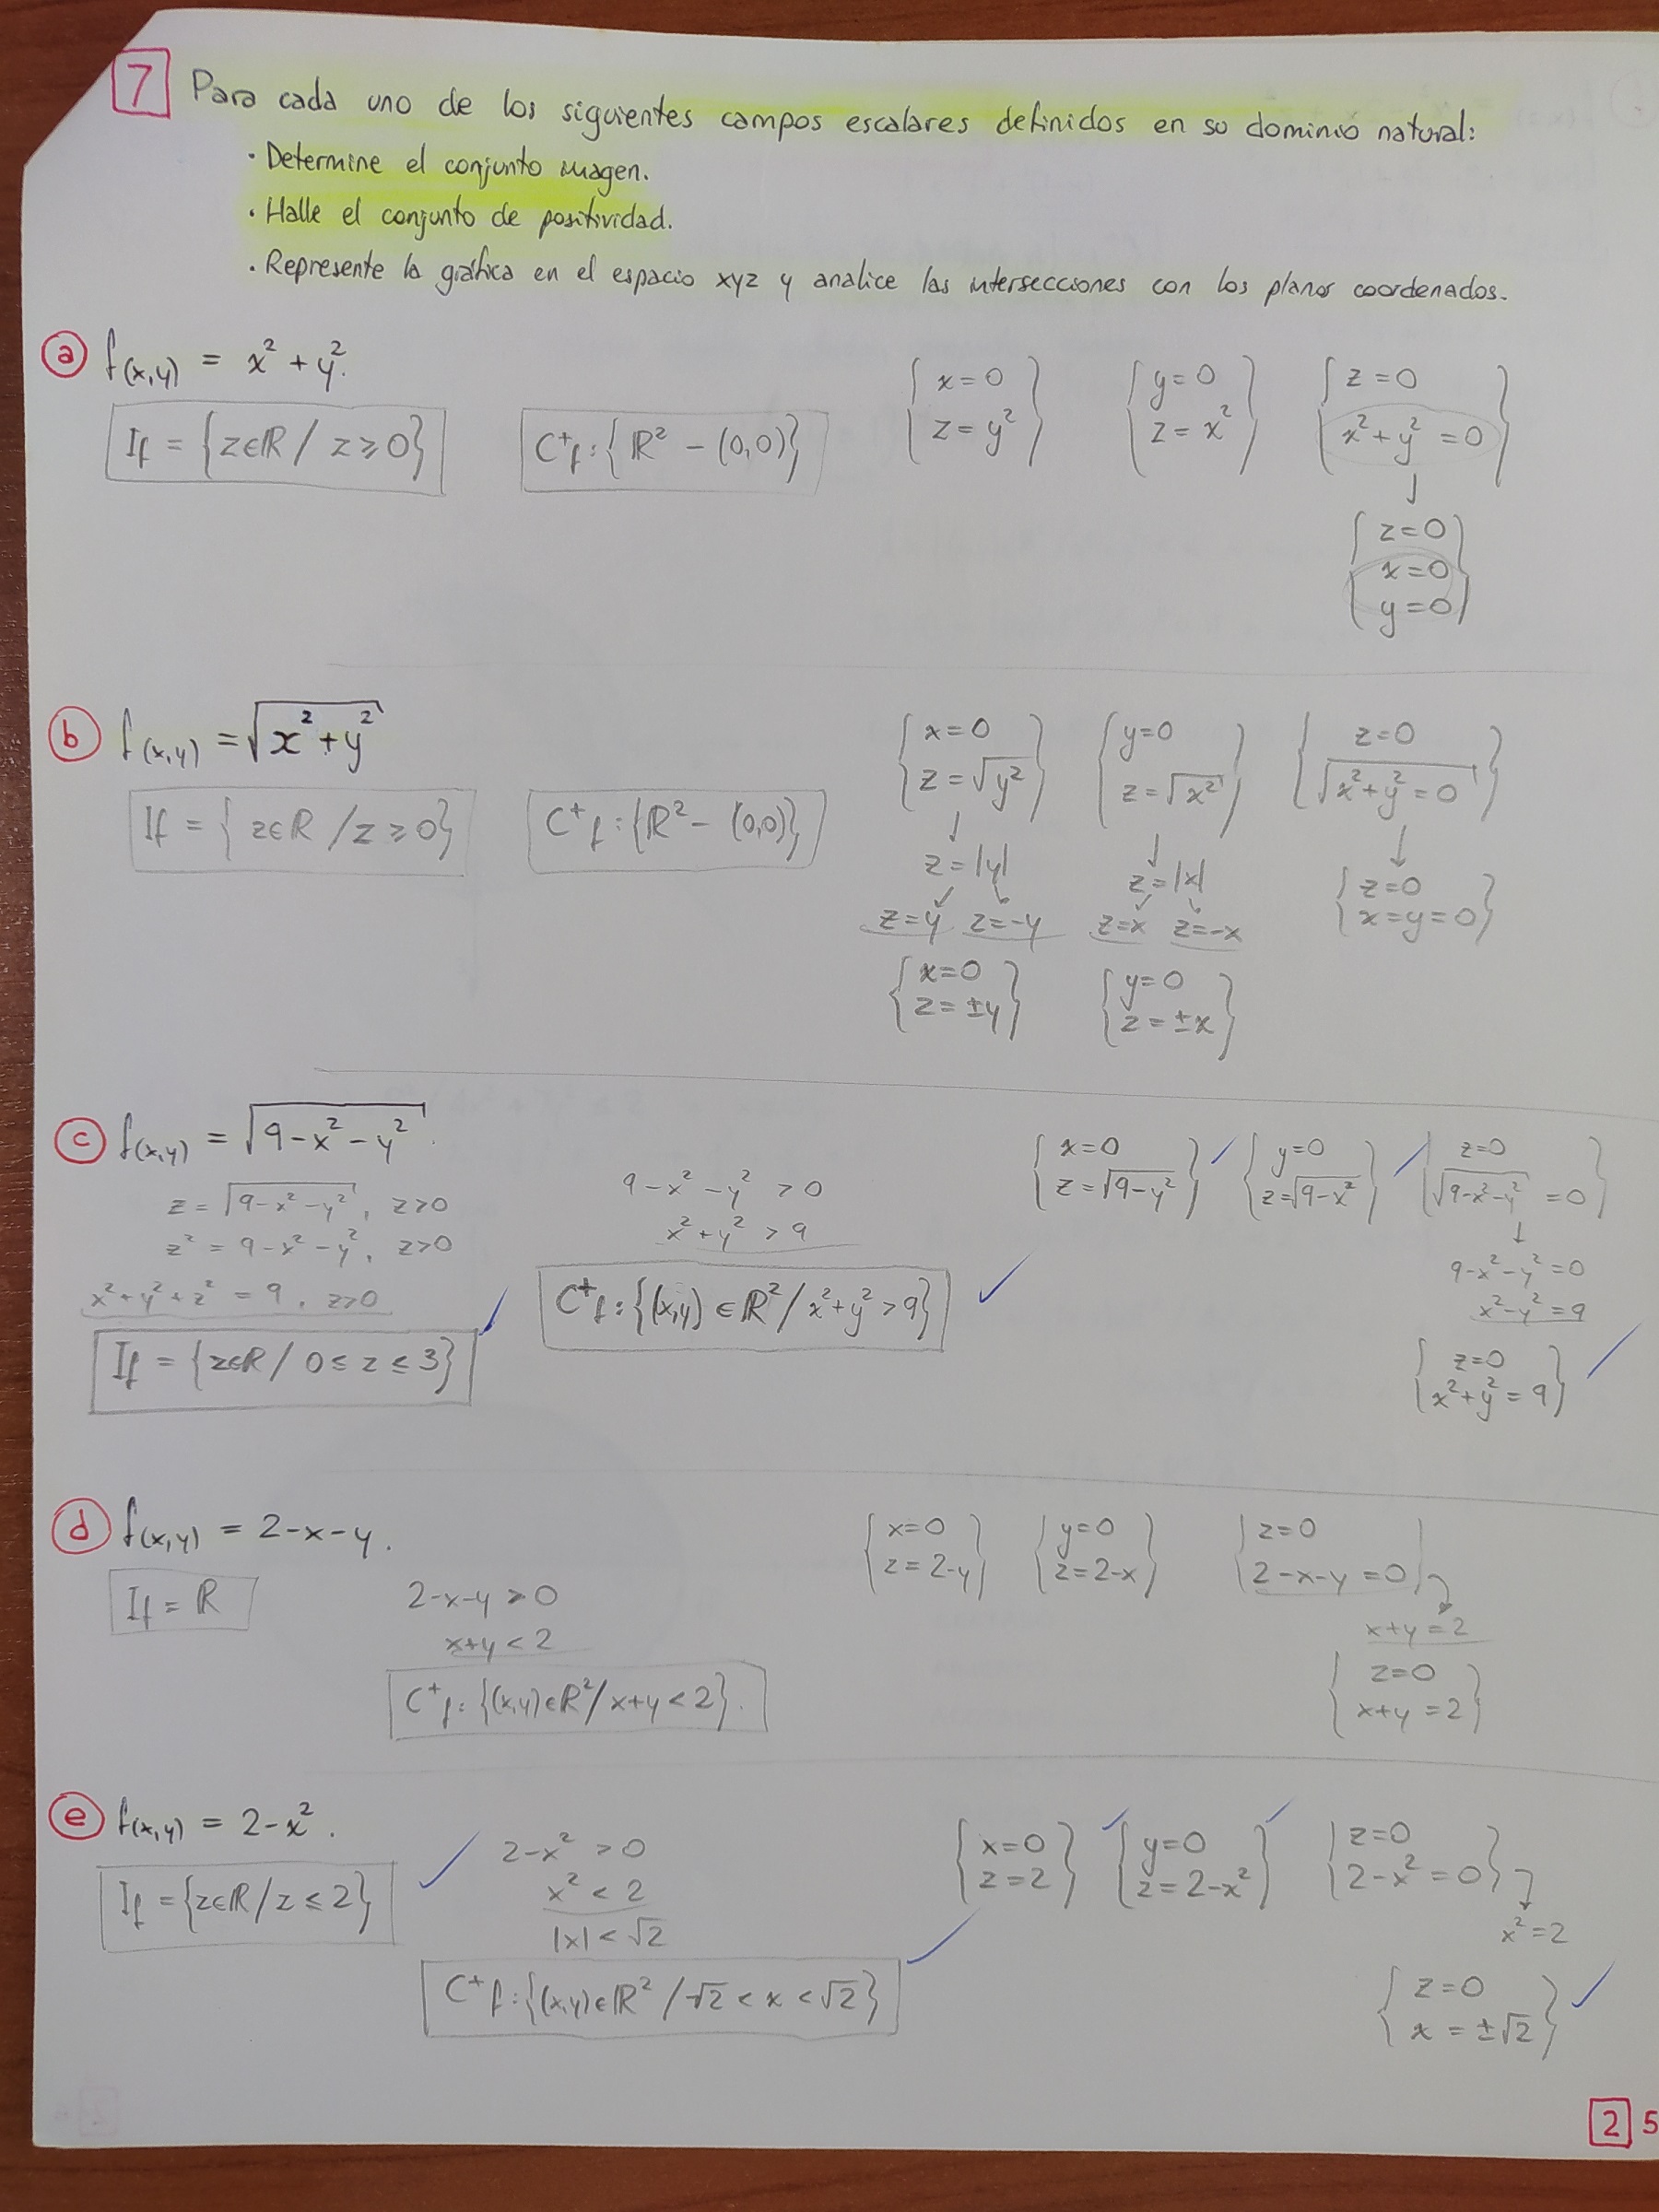 7 Para cada uno de los siguientes campos escalares definidos en su dominio natural:
· Determine el conjunto imagen.
· Halle el conjunto de positividad.
· Represente la gráfica en el espacio xyz y analice las intersecciones con los planos coordenados.
a f(x,y) = x² + y².
If = {z∈ℝ / z ≥ 0}
C⁺f: {ℝ² - (0,0)}
{x=0
z=y²}
{y=0
z=x²}
{z=0
x²+y²=0}
↓
{z=0
x=0
y=0}
b f(x,y) = √(x²+y²)
If = {z∈ℝ / z ≥ 0}
C⁺f: {ℝ² - (0,0)}
{x=0
z=√y²}
↓
z=|y|
↙ ↘
z=y z=-y
{x=0
z=±y}
{y=0
z=√x²}
↓
z=|x|
↙ ↘
z=x z=-x
{y=0
z=±x}
{z=0
√(x²+y²=0)}
↓
{z=0
x=y=0}
c f(x,y) = √(9-x²-y²).
z = √(9-x²-y²), z>0
z² = 9-x²-y², z>0
x²+y²+z² = 9, z>0
If = {z∈ℝ / 0 ≤ z ≤ 3} ✓
9-x²-y² > 0
x²+y² > 9
C⁺f: {(x,y) ∈ ℝ² / x²+y² > 9} ✓
{x=0
z=√(9-y²)} ✓
{y=0
z=√(9-x²)} ✓
{z=0
√(9-x²-y²) = 0}
↓
9-x²-y²=0
x²-y²=9
{z=0
x²+y²=9} ✓
d f(x,y) = 2-x-y.
If = ℝ
2-x-y > 0
x+y < 2
C⁺f: {(x,y)∈ℝ² / x+y < 2}.
{x=0
z=2-y}
{y=0
z=2-x}
{z=0
2-x-y=0}
x+y=2
{z=0
x+y=2}
e f(x,y) = 2-x².
If = {z∈ℝ / z ≤ 2} ✓
2-x² > 0
x² < 2
|x| < √2
C⁺f: {(x,y)∈ℝ² / -√2 < x < √2} ✓
{x=0
z=2} ✓
{y=0
z=2-x²} ✓
{z=0
2-x²=0}
x²=2
{z=0
x=±√2} ✓
2 5